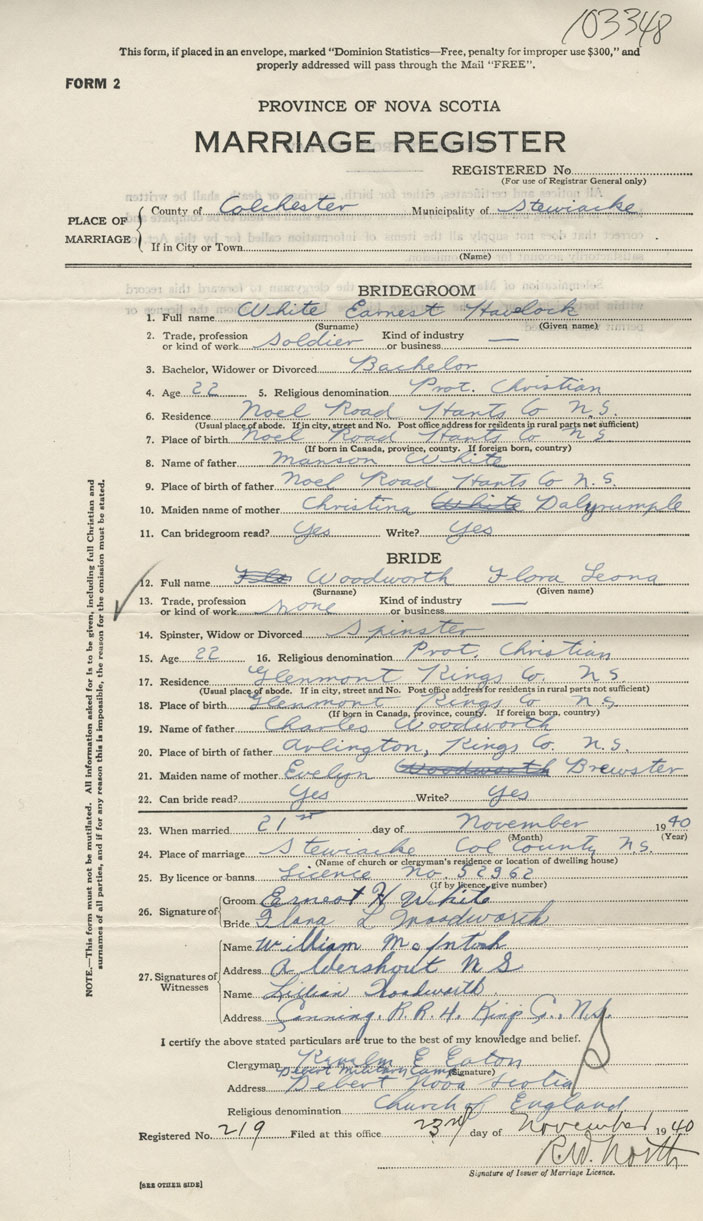 103348
This form, if placed in an envelope, marked "Dominion Statistics—Free, penalty for improper use $300," and
properly addressed will pass through the Mail "FREE".
FORM 2
PROVINCE OF NOVA SCOTIA
MARRIAGE REGISTER
REGISTERED No.
(For use of Registrar General only)
PLACE OF MARRIAGE
County of Colchester Municipality of Stewiacke
If in City or Town
(Name)
BRIDEGROOM
1. Full name White Earnest Havelock
(Surname) (Given name)
2. Trade, profession or kind of work Soldier Kind of industry or business —
3. Bachelor, Widower or Divorced Bachelor
4. Age 22 5. Religious denomination Prot. Christian
6. Residence Noel Road Hants Co N.S.
(Usual place of abode. If in city, street and No. Post office address for residents in rural parts not sufficient)
7. Place of birth Noel Road Hants Co N S
(If born in Canada, province, county. If foreign born, country)
8. Name of father Manson White
9. Place of birth of father Noel Road Hants Co N.S.
10. Maiden name of mother Christina White Dalyrumple
11. Can bridegroom read? Yes Write? Yes
BRIDE
12. Full name Woodworth Flora Leona
(Surname) (Given name)
13. Trade, profession or kind of work none Kind of industry or business —
14. Spinster, Widow or Divorced Spinster
15. Age 22 16. Religious denomination Prot. Christian
17. Residence Glenmont Kings Co. N.S.
(Usual place of abode. If in city, street and No. Post office address for residents in rural parts not sufficient)
18. Place of birth Glenmont Kings Co. N.S.
(If born in Canada, province, county. If foreign born, country)
19. Name of father Charles Woodworth
20. Place of birth of father Arlington, Kings Co. N.S.
21. Maiden name of mother Evelyn Woodworth Brewster
22. Can bride read? Yes Write? Yes
23. When married 21st day of November 1940
(Month) (Year)
24. Place of marriage Stewiacke Col County N.S.
(Name of church or clergyman's residence or location of dwelling house)
25. By licence or banns Licence No. 52962
(If by licence, give number)
26. Signature of
Groom Ernest H White
Bride Flora L Woodworth
27. Signatures of Witnesses
Name William McIntosh
Address Aldershout N S
Name Lillian Woodworth
Address Canning, R.R.4, Kings Co., N.S.
I certify the above stated particulars are true to the best of my knowledge and belief.
Clergyman E Eaton
(Signature)
Debert Military Camp
Address Debert Nova Scotia
Religious denomination Church of England
Registered No. 219 Filed at this office 23rd day of November 1940
R.W. North
Signature of Issuer of Marriage Licence.
[SEE OTHER SIDE]
NOTE.—This form must not be mutilated. All information asked for is to be given, including full Christian and
surnames of all parties, and if for any reason this is impossible, the reason for the omission must be stated.